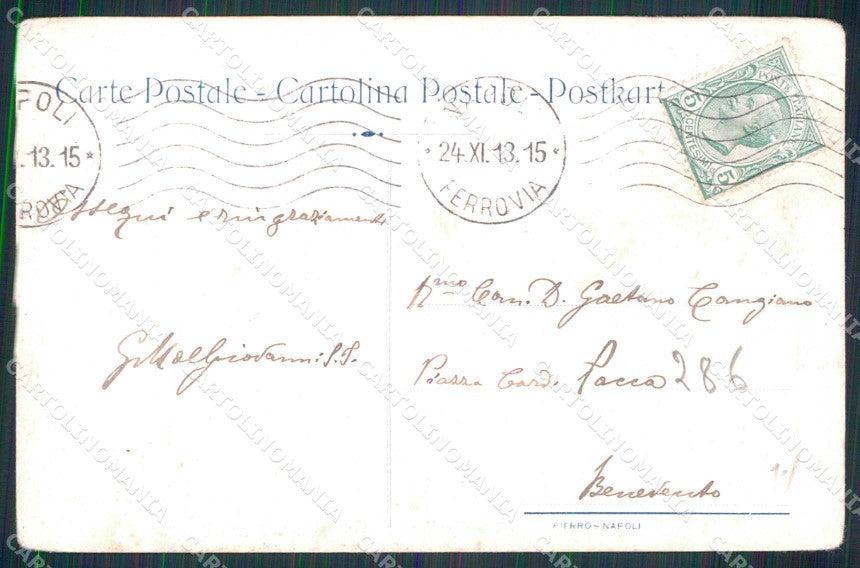 Carte Postale - Cartolina Postale - Postkart
POLI
.13.15*
ROVIA
24.XI.13.15*
FERROVIA
POSTE ITALIANE
5 CENTESIMI 5
Ossequi e ringraziamenti
Can. D. Gaetano Cangiano
G. Mel Giovanni S.J.
Piazza Card. Pacca 286
Benevento
FIERRO-NAPOLI
CARTOLINOMANIA